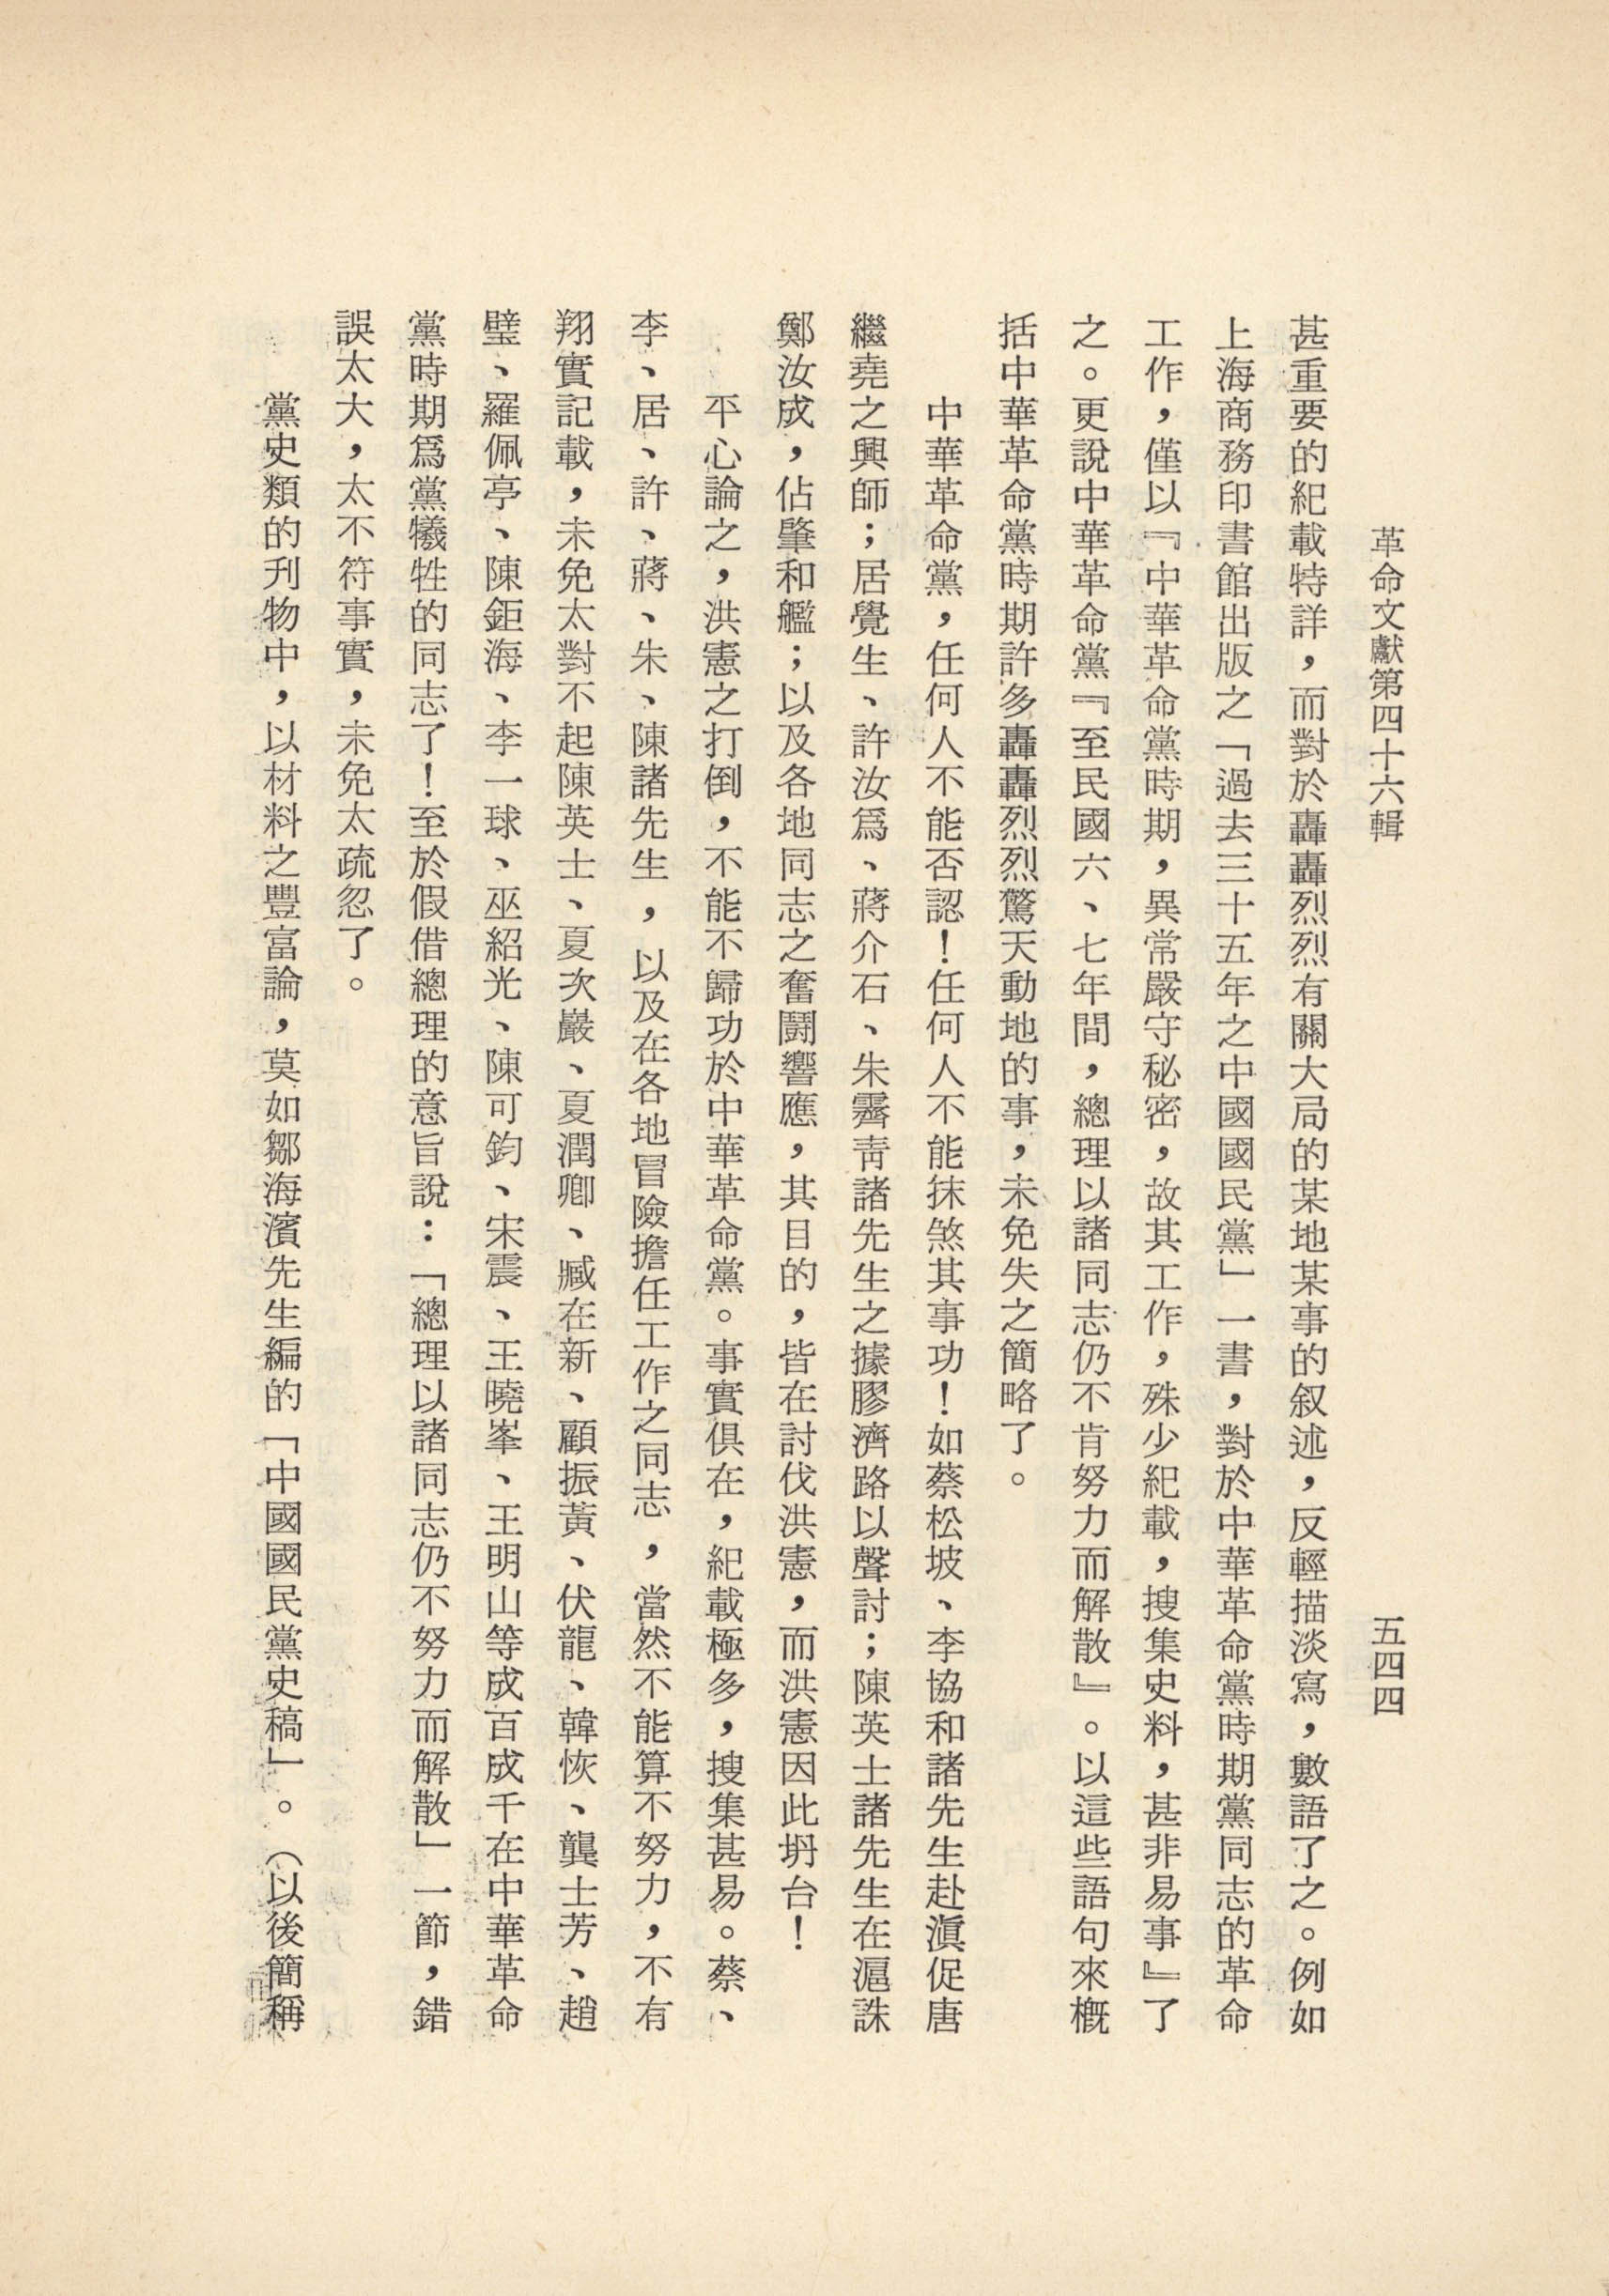 革命文獻第四十六輯
五四四
甚重要的紀載特詳，而對於轟轟烈烈有關大局的某地某事的叙述，反輕描淡寫，數語了之。例如
上海商務印書館出版之「過去三十五年之中國國民黨」一書，對於中華革命黨時期黨同志的革命
工作，僅以『中華革命黨時期，異常嚴守秘密，故其工作，殊少紀載，搜集史料，甚非易事』了
之。更說中華革命黨『至民國六、七年間，總理以諸同志仍不肯努力而解散』。以這些語句來槪
括中華革命黨時期許多轟轟烈烈驚天動地的事，未免失之簡略了。
中華革命黨，任何人不能否認！任何人不能抹煞其事功！如蔡松坡、李協和諸先生赴滇促唐
繼堯之興師；居覺生、許汝爲、蔣介石、朱霽靑諸先生之據膠濟路以聲討；陳英士諸先生在滬誅
鄭汝成，佔肇和艦；以及各地同志之奮鬪響應，其目的，皆在討伐洪憲，而洪憲因此坍台！
平心論之，洪憲之打倒，不能不歸功於中華革命黨。事實俱在，紀載極多，搜集甚易。蔡、
李、居、許、蔣、朱、陳諸先生，以及在各地冒險擔任工作之同志，當然不能算不努力，不有
翔實記載，未免太對不起陳英士、夏次巖、夏潤卿、臧在新、顧振黃、伏龍、韓恢、龔士芳、趙
璧、羅佩亭、陳鉅海、李一球、巫紹光、陳可鈞、宋震、王曉峯、王明山等成百成千在中華革命
黨時期爲黨犧牲的同志了！至於假借總理的意旨說：「總理以諸同志仍不努力而解散」一節，錯
誤太大，太不符事實，未免太疏忽了。
黨史類的刋物中，以材料之豐富論，莫如鄒海濱先生編的「中國國民黨史稿」。（以後簡稱